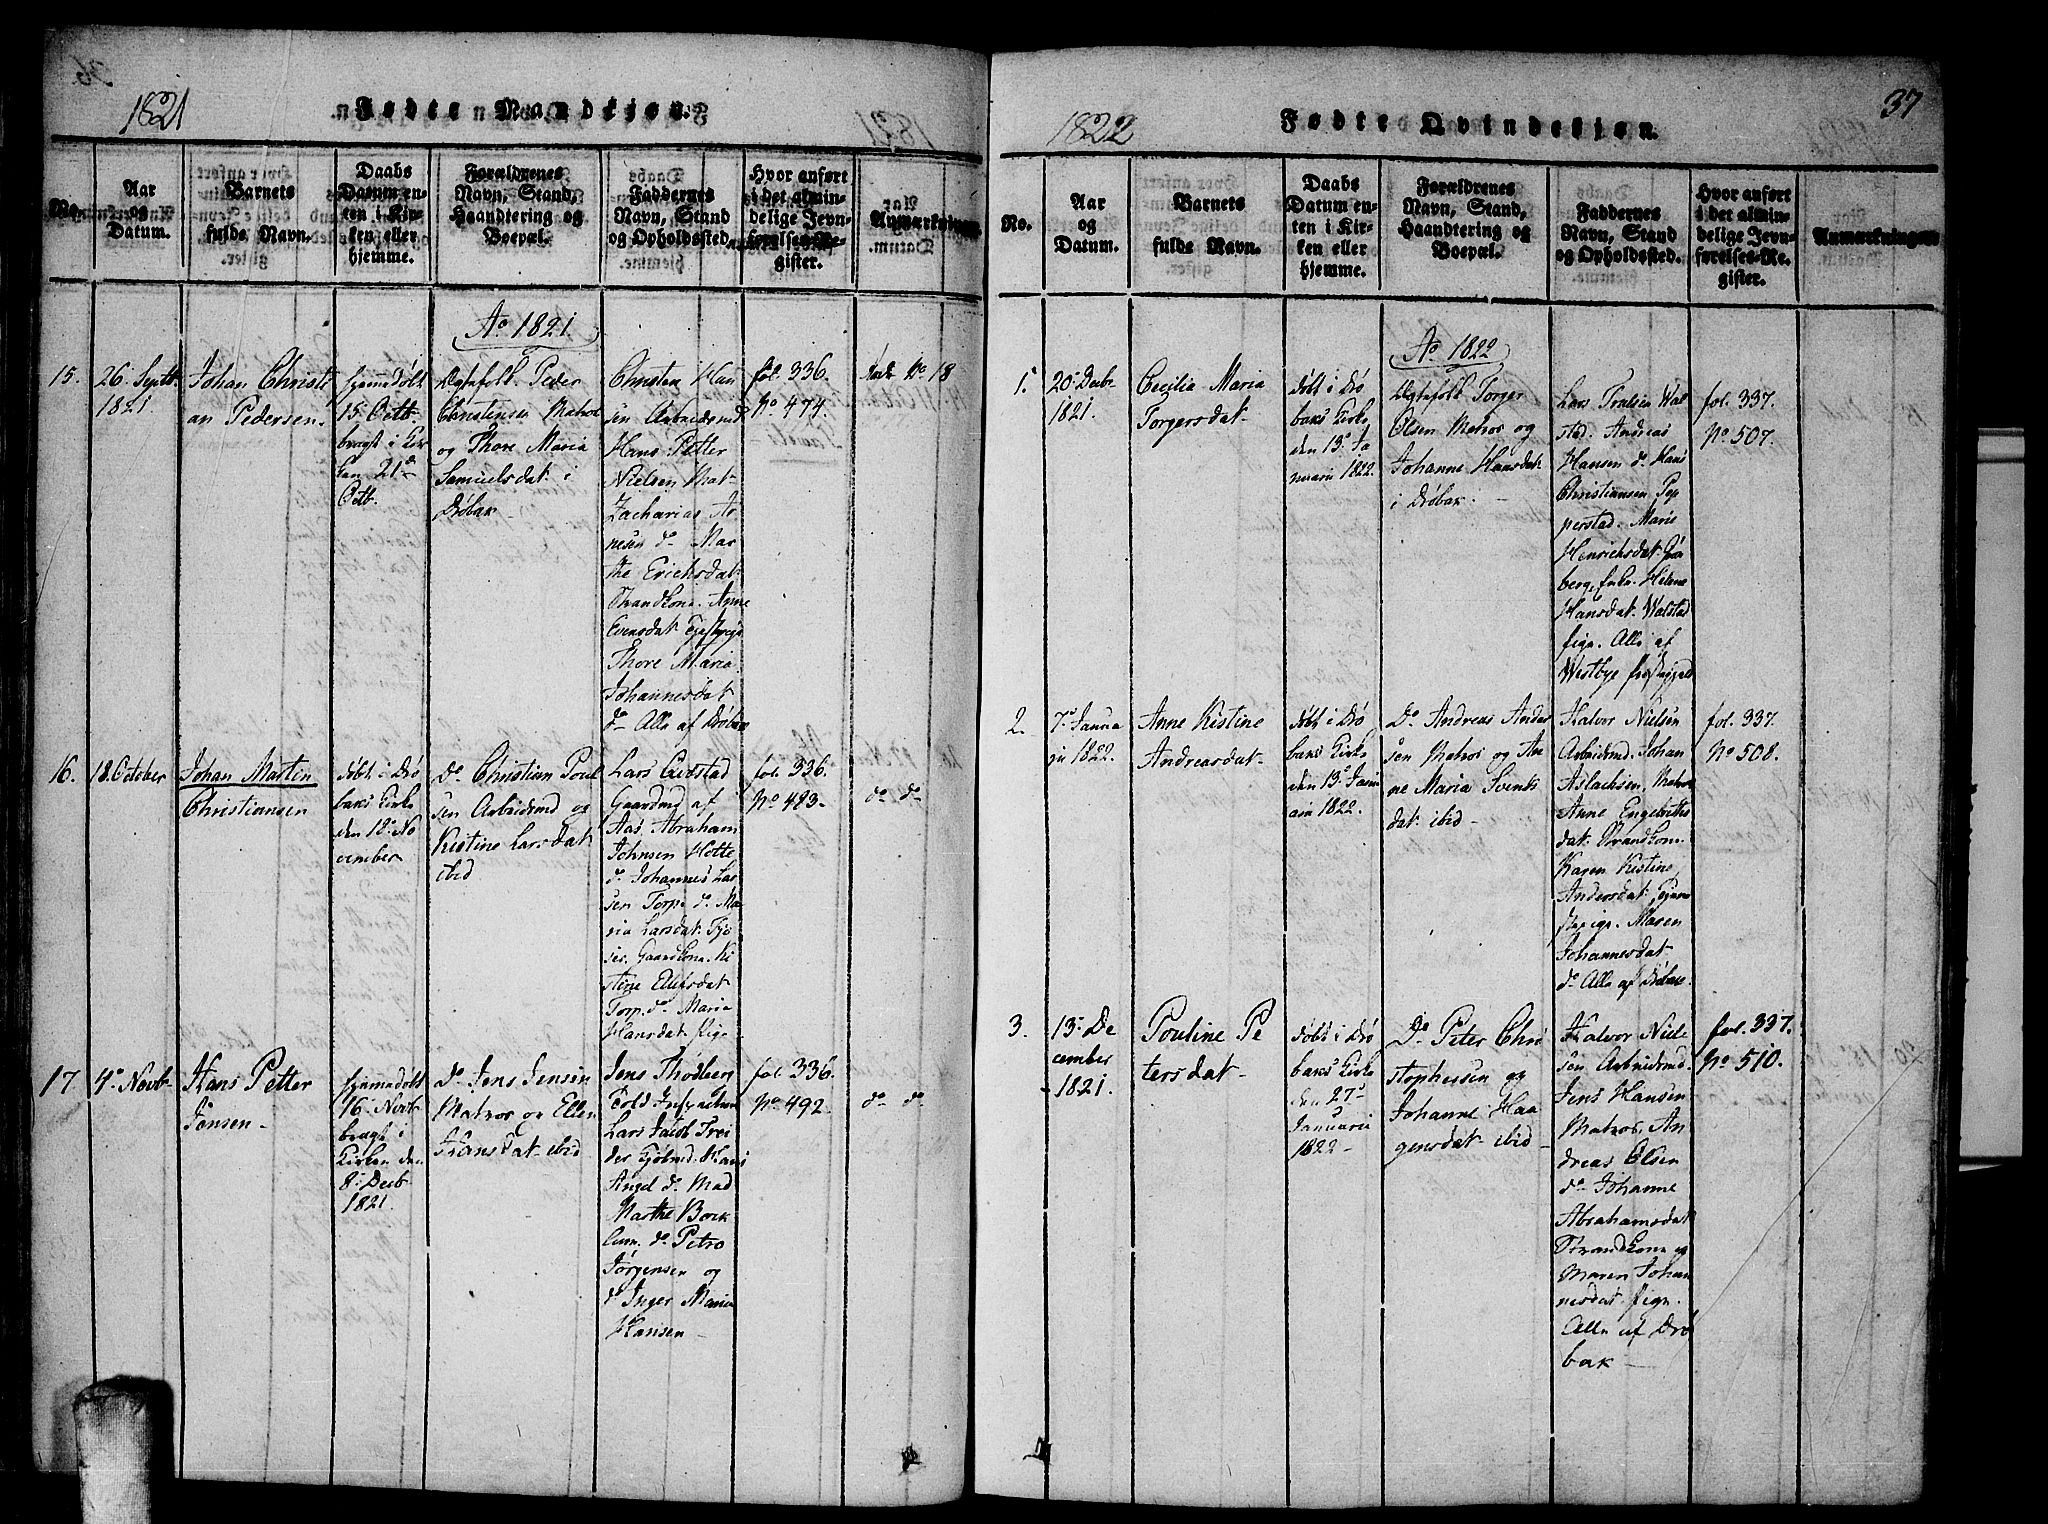 1821
Fødte Mandkjøn.
No.
Aar
og
Datum.
Barnets
fulde Navn.
Daabs
Datum en-
ten i Kir-
ken eller
hjemme.
Forældrenes
Navn, Stand,
Haandtering og
Boepæl.
Faddernes
Navn, Stand
og Opholdssted.
Hvor anført
i det almin-
delige Jevn-
førelses-Re-
gister.
Anmærkninger
Ao 1821.
15.
26. Septbr.
1821.
Johan Christi
an Pedersen.
hjemmedøbt
15. Octb.
bragt i Kir
ken 21de
Octb.
Ægtefolk Peder
Christensen Matros
og Thore Maria
Samuelsdat i
Drøbak
Christen Han
sen Arbeidsmd
Hans Petter
Nielsen Mat-
Zacharias Ar
nesen do Mar
the Erichsdat
Strandkone. Anne
Evensdat
Thore Maria
Johannesdat
do Alle af Drøbak
fol. 336.
No 474.
No 18
16.
18. October
Johan Martin
Christiansen
døbt i Drø
baks Kirke
den 18. No
vember
Do Christian Poul
sen Arbeidsmd og
Kistine Larsdat
ibid
Lars Gudstad
Gaardmd af
Aas. Abraham
Johnsen Hotte
do Johannes Lar
sen Torp do Ma
ria Larsdat
Gaardkone. Ki
stine
Torp. do Maria
Hansdat Pige
fol. 336.
No 483.
do do
17
4de Novbr
Hans Petter
Jensen
hjemmedøbt
16 Novbr
bragt i
Kirken den
8. Decb
1821.
Do Jens Jensen
Matros og Ellen
Hansdat ibid
Jens Thodberg
Told Inspecteur
Lars Jacob
Kjøbmd. Hans
Angel do Mad
Marthe Bork
do Petro
Jørgensen og
do Inger Marie
Hansen
fol. 336.
No 492.
do do
37
1822
Fødte Qvindekjøn.
No.
Aar
og
Datum.
Barnets
fulde Navn.
Daabs
Datum en-
ten i Kir-
ken eller
hjemme.
Forældrenes
Navn, Stand,
Haandtering og
Boepæl.
Faddernes
Navn, Stand
og Opholdssted.
Hvor anført
i det almin-
delige Jevn-
førelses-Re-
gister.
Anmærkninger
Ao 1822
1.
20. Decbr
1821.
Cecilia Maria
Torgersdat.
døbt i Drø
baks Kirke
den 13. Ja
nuarii 1822.
Ægtefolk Torger
Olsen Matros og
Johanne Hansdat
i Drøbak.
Lars Trulsen Wal
stad. Andreas
Hansen do Hans
Christiansen Pep
perstad. Marie
Henrichsdat
berg, Enke. Helene
Hansdat Walstad
Pige. Alle af
Westbye Præstegield
fol. 337.
No 507.
2.
7. Janua
rii 1822.
Anne Kistine
Andreasdat.
døbt i Drø
baks Kirke
den 13. Janu
arii 1822.
Do Andreas Ander
sen Matros og An
ne Maria Svends
dat ibid
Halvor Nielsen
Arbeidsmd. Johan
Aslachsen, Matros
Anne Engebrethss
dat. Strandkone.
Karen Kistine
Andersdat, tjene
stepige. Maren
Johannesdat
do Alle af Drøbac.
fol. 337.
No 508.
3.
13. De
cember
1821.
Pouline Pe
tersdat
døbt i Drø
baks Kirke
den 27.
Januarii
1822
Do Peter Chri
stophersen og
Johanne Haa
gensdat ibid
Halvor Niel
sen Arbeidsmd.
Jens Hansen
Matros, An
dreas Olsen
do Johanne
Abrahamsdat
Strandkone og
Maren Johan
nesdat Pige.
Alle af Drø
bak
fol. 337.
No 510.